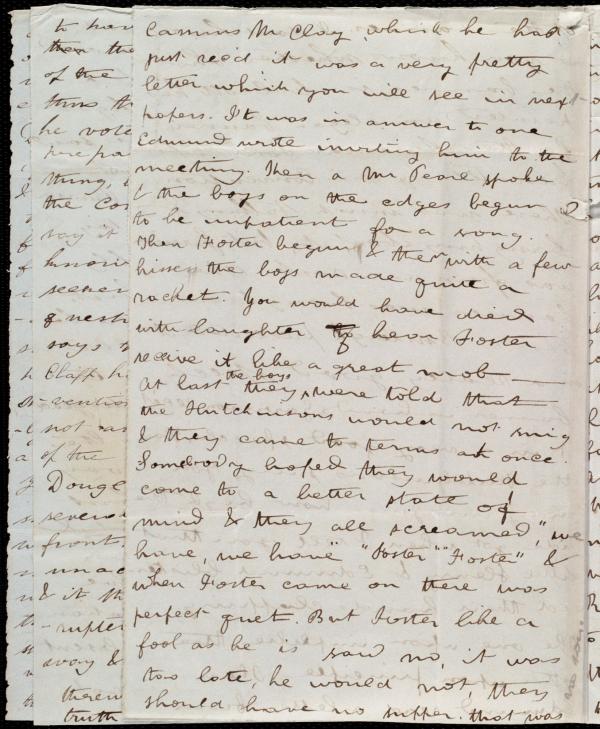 Cassius M Clay which he had
just rec'd it was a very pretty
letter which you will see in next
papers. It was in answer to one
Edmund wrote inviting him to the
meeting. Then a Mr Pease spoke
& the boys on the edges begun
to be impatient for a song.
Then Foster begun & then with a few
hisses the boys made quite a
racket. You would have died
with laughter to hear Foster
receive it like a great mob —
At last the boys they were told that
the Hutchinsons would not sing
& they came to terms at once.
Somebody hoped they would
come to a better state of
mind & they all screamed, "we
have, we have" "Foster" "Foster" &
when Foster came on there was
perfect quiet. But Foster like a
fool as he is said no, it was
too late, he would not, they
should have no supper. that was
to have
then the
of the
thus th
he vote
prepa
thing,
the Con
say it
know
seemed
says
Clapp h
-vention
not as
of the
Dougl
several
front
unac
& it th
-rupte
away &
therew
truth